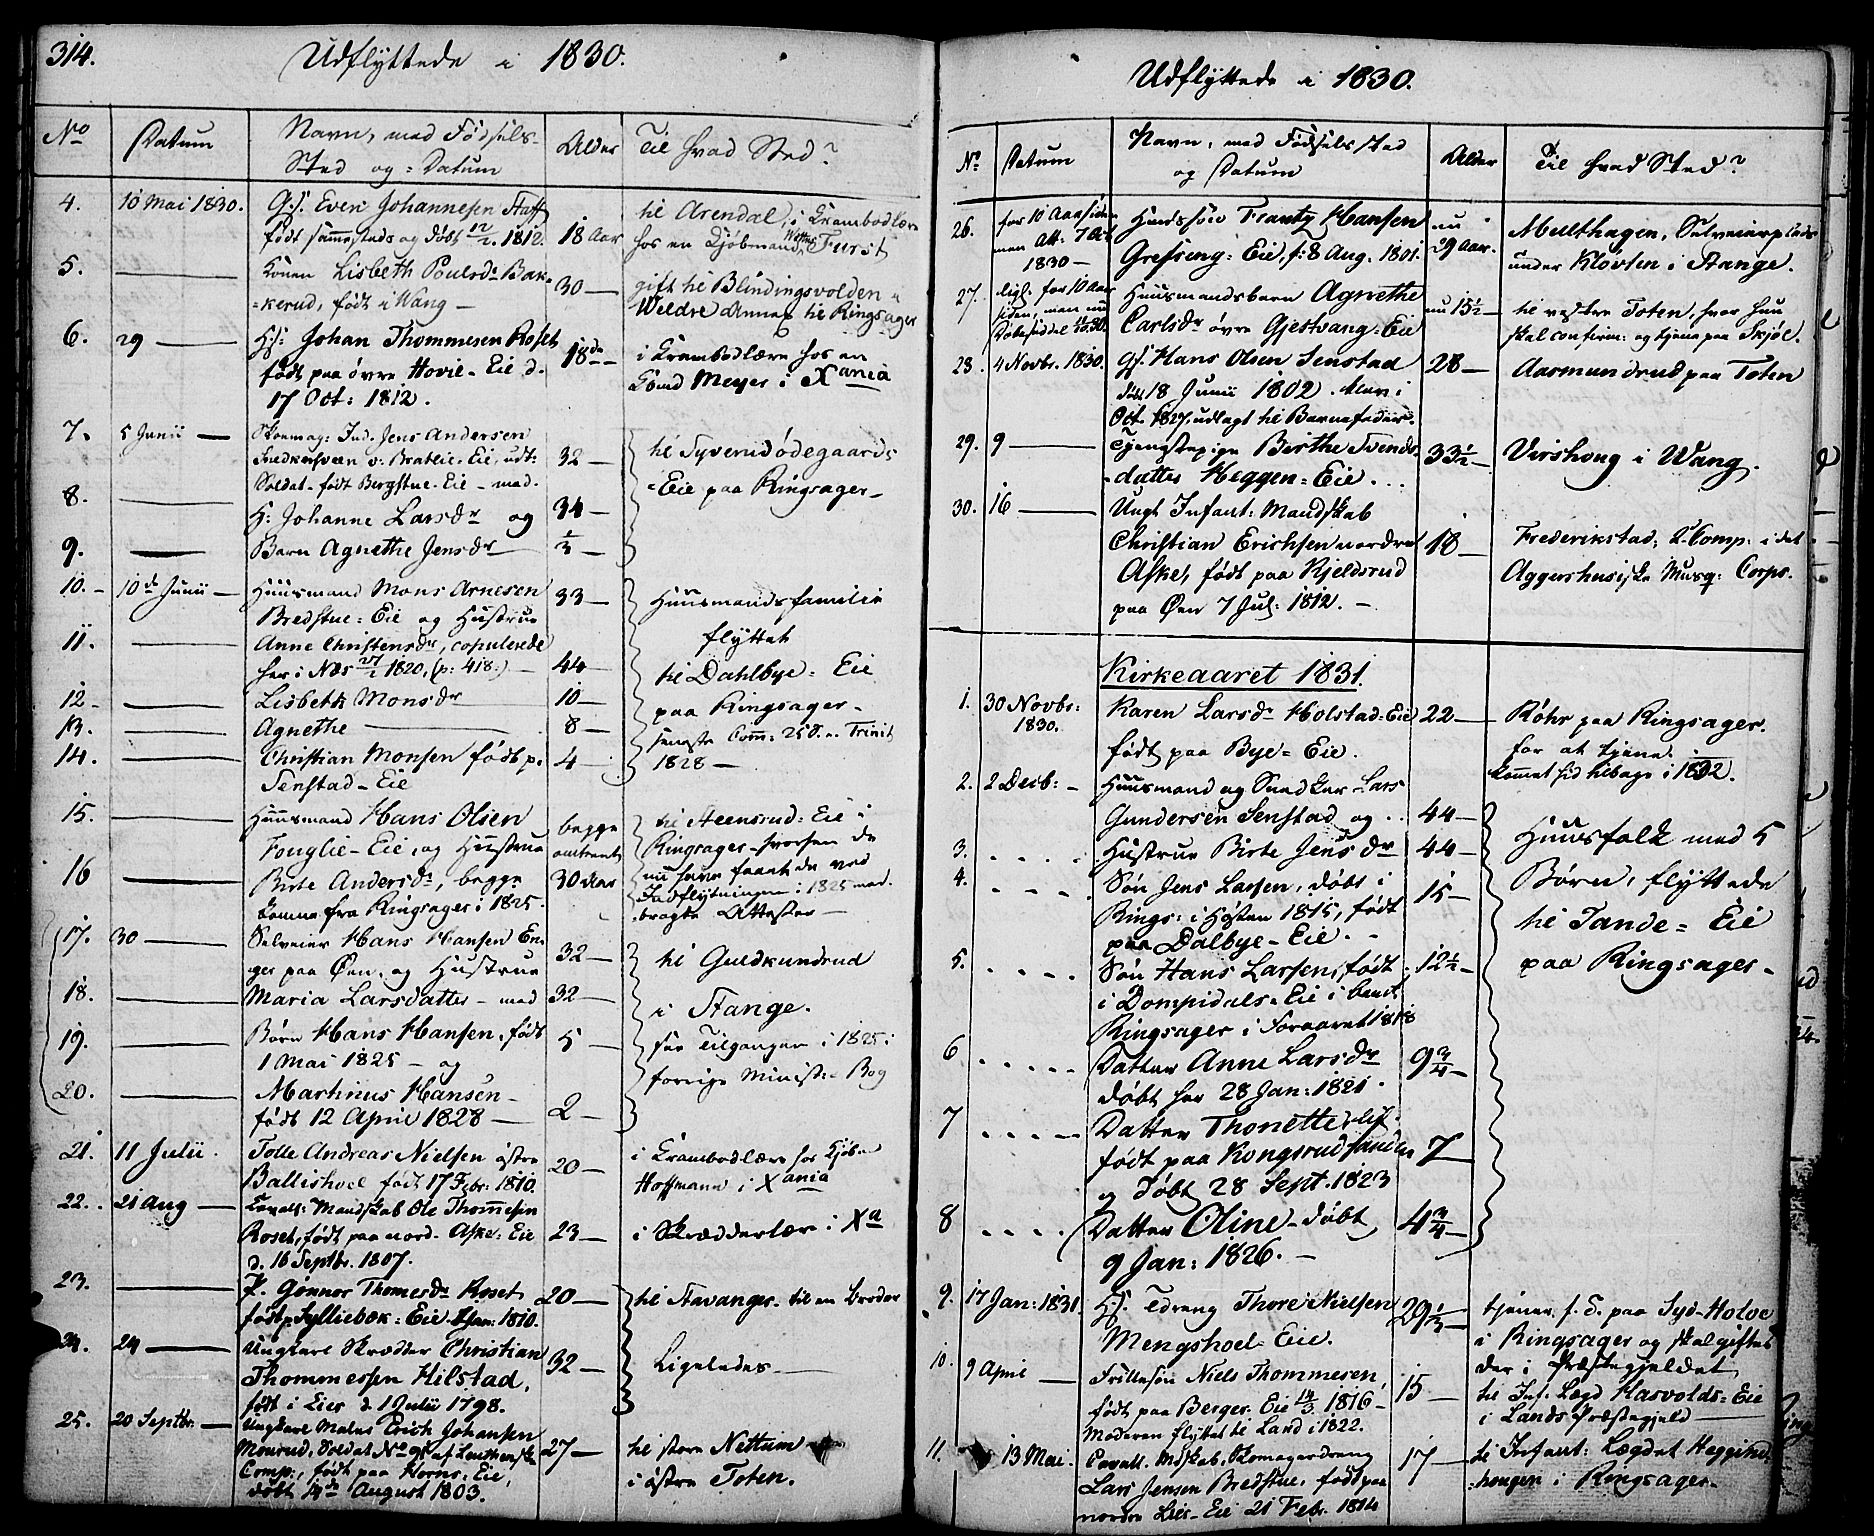 314.
Udflyttede i 1830.
No
Datum
Navn, med Fødsels-
Sted og = Datum
Alder
Til hvad Sted?
4. 10 Mai 1830. Gs. Even Johannesen Staff
født sammesteds og døbt 12/2. 1812. 18 Aar
til Arendal, i Krambodlære
hos en Kjøbmand Furst
5. Konen Lisbeth Poulsdr Bak-
=kerud, født i Wang — 30 —
gift til Blindingsvolden =
Weldre Annex til Ringsager
6. 29 — Gs: Johan Thommesen Roset
født paa øvre Hovie-Eie d.
17 Oct: 1812. 18 do
i Krambodlære hos en
Kbmd Meyer i Xania
7. 5 Junii — Skoemag: Ind. Jens Andersen
Snedkersvæn v. Bratlie-Eie, udt:
Soldat - født Bergstue-Eie - med. 32 —
8. H: Johanne Larsdr og 34 —
9. Barn Agnethe Jensdr 1/3 —
til Tyverudødegaards
=Eie paa Ringsager —
10. - 10de Junii — Huusmand Mons Arnesen
Bredstue = Eie og Hustrue 33 —
11. Anne Christensdr, copulerede
her i Næs 27/1 1820, (p: 418:) — 44 —
12 - Lisbeth Monsdr 10 —
13. - Agnethe — 8 —
14. - Christian Monsen født p.
Tenstad-Eie 4 —
Huusmandsfamilie
flyttet
til Dahlbye = Eie
paa Ringsager -
seneste Com: 25 S. a. Trinit
1828 —
15. Huusmand Hans Olsen
Fouglie-Eie, og Hustrue
16 Birte Andersdr, begge
komne fra Ringsager i 1825.
begge
omtrent
30 Aar
til Steensrud = Eie i
Ringsager - hvorhen de
nu have faaet de ved
Indflytningen i 1825 med-
bragte Attester —
17. 30 — Selveier Hans Hansen En-
ger paa Øen, og Hustrue 32 —
18. Maria Larsdatter - med 32 —
19. Børn Hans Hansen, født
1 Mai 1825 - og 5 —
20. Marthinus Hansen -
født 12 April 1828 — 2 —
til Guldkundrud
i Stange.
see Tilgangen i 1825 i
forrige Minist: - Bog
21. 11 Julii. Tolle Andreas Nielsen østre
Ballishoel født 17 Febr: 1810. 20 —
i Krambodlære hos Kjøbm
Hoffmann i Xania
22. 21 Aug — Cavall: Mandskab Ole Thommesen
Roset, født paa nord. Aske-Eie
d. 16 Septbr. 1807. 23 —
i Skrædderlære i Xa
23. P. Gonnor Thomesdr Roset
født p Sylliebæk = Eie 1810. 20 —
til Stavanger - til en Broder
24. 24 — Ungkarl Skrædder Christian
Thommesen Hilstad,
født i Lier d. 1 Julii 1798. 32 —
Ligeledes —
25. 20 Septbr. — Ungkarl Maler Erich Johansen
Monrud, Soldat No 91 af
Comp:, født paa Horns-Eie,
døbt 14de August 1803. 27 —
til store Nettum
i østre Toten.
Udflyttede i 1830.
No.
Datum
Navn, med Fødselssted
og Datum
Alder
Til hvad Sted?
26. for 10 Aar siden
men Att: 7 Oct
1830 — Huussøn Frantz Hansen
Grefseng = Eie, f: 8 Aug. 1801.
nu
29 Aar.
Multhagen, Selveierplads
under Kløvten i Stange.
27. ligl. for 10 Aar
siden, men nu
Huusmandsbarn Agnethe
Carlsdr øvre Gjestvang = Eie nu 15½ —
til vestre Toten, hvor hun
skal confirm: og tjene paa Skjøl.
28. 4 Novbr. 1830. Gs. Hans Olsen Senstad
døbt 18 Junii 1802. Blev i
Oct. 1827 udlagt til Barnefader. 28 —
Aarmundrud paa Toten
29. 9 — Tjenestepige Birthe Svends-
=datter Heggen = Eie. 33½ —
Virshoug i Wang.
30. 16 — Ungt Infant: Mandskab
Christian Erichsen nordre
Aske, født paa Kjeldsrud
paa Øen 7 Jul: 1812. - 18 —
Frederikstad, 2. Comp: i det
Aggershusiske Musq: Corps.
Kirkeaaret 1831.
1. 30 Novbr:
1830. Karen Larsdr Holstad = Eie
født paa Bye = Eie. 22 —
Røhr paa Ringsager.
for at tjene.
kommet hid tilbage i 1832.
2. 2 Decb: - Huusmand og Snedker Lars
Gundersen Senstad og 44 —
3. Hustrue Birte Jensdr 44 —
4. Søn Jens Larsen, døbt i
Rings: i Høsten 1815, født
paa Dalbye-Eie. - 15 —
5. Søn Hans Larsen, født
i Dompidals-Eie i
Ringsager i Foraaret 1818 12½ —
6 Datter Anne Larsdr
døbt her 28 Jan: 1821. 9¾ —
7 Datter Thonette
født paa Kongsrud
og døbt 28 Sept. 1823 7 —
8 Datter Oline - døbt
9 Jan: 1826. — 4¾ —
Huusfolk med 5
Børn, flyttede
til Tande = Eie
paa Ringsager -
9. 17 Jan: 1831. Gs. Dreng Thore Nielsen
Mengshoel = Eie. 29⅓ —
tjener f. T. paa Syd-Holoe
i Ringsager og skal giftes
der i Præstegjeldet
10. 9 April — Frillesøn Niels Thommesen,
født paa Berger-Eie 14/3 1816 -
Moderen flyttet til Land i 1822. 15 —
til Inf. Lægd Hasvolds-Eie
i Lands Præstegjeld —
11. 13 Mai. Cavall. Mdskab, Skomagerdreng
Lars Jensen Bredstue, født paa
nordre Lier-Eie 21 Febr. 1814 17 —
til Infant: Lægdet Heggind-
hougen i Ringsager -